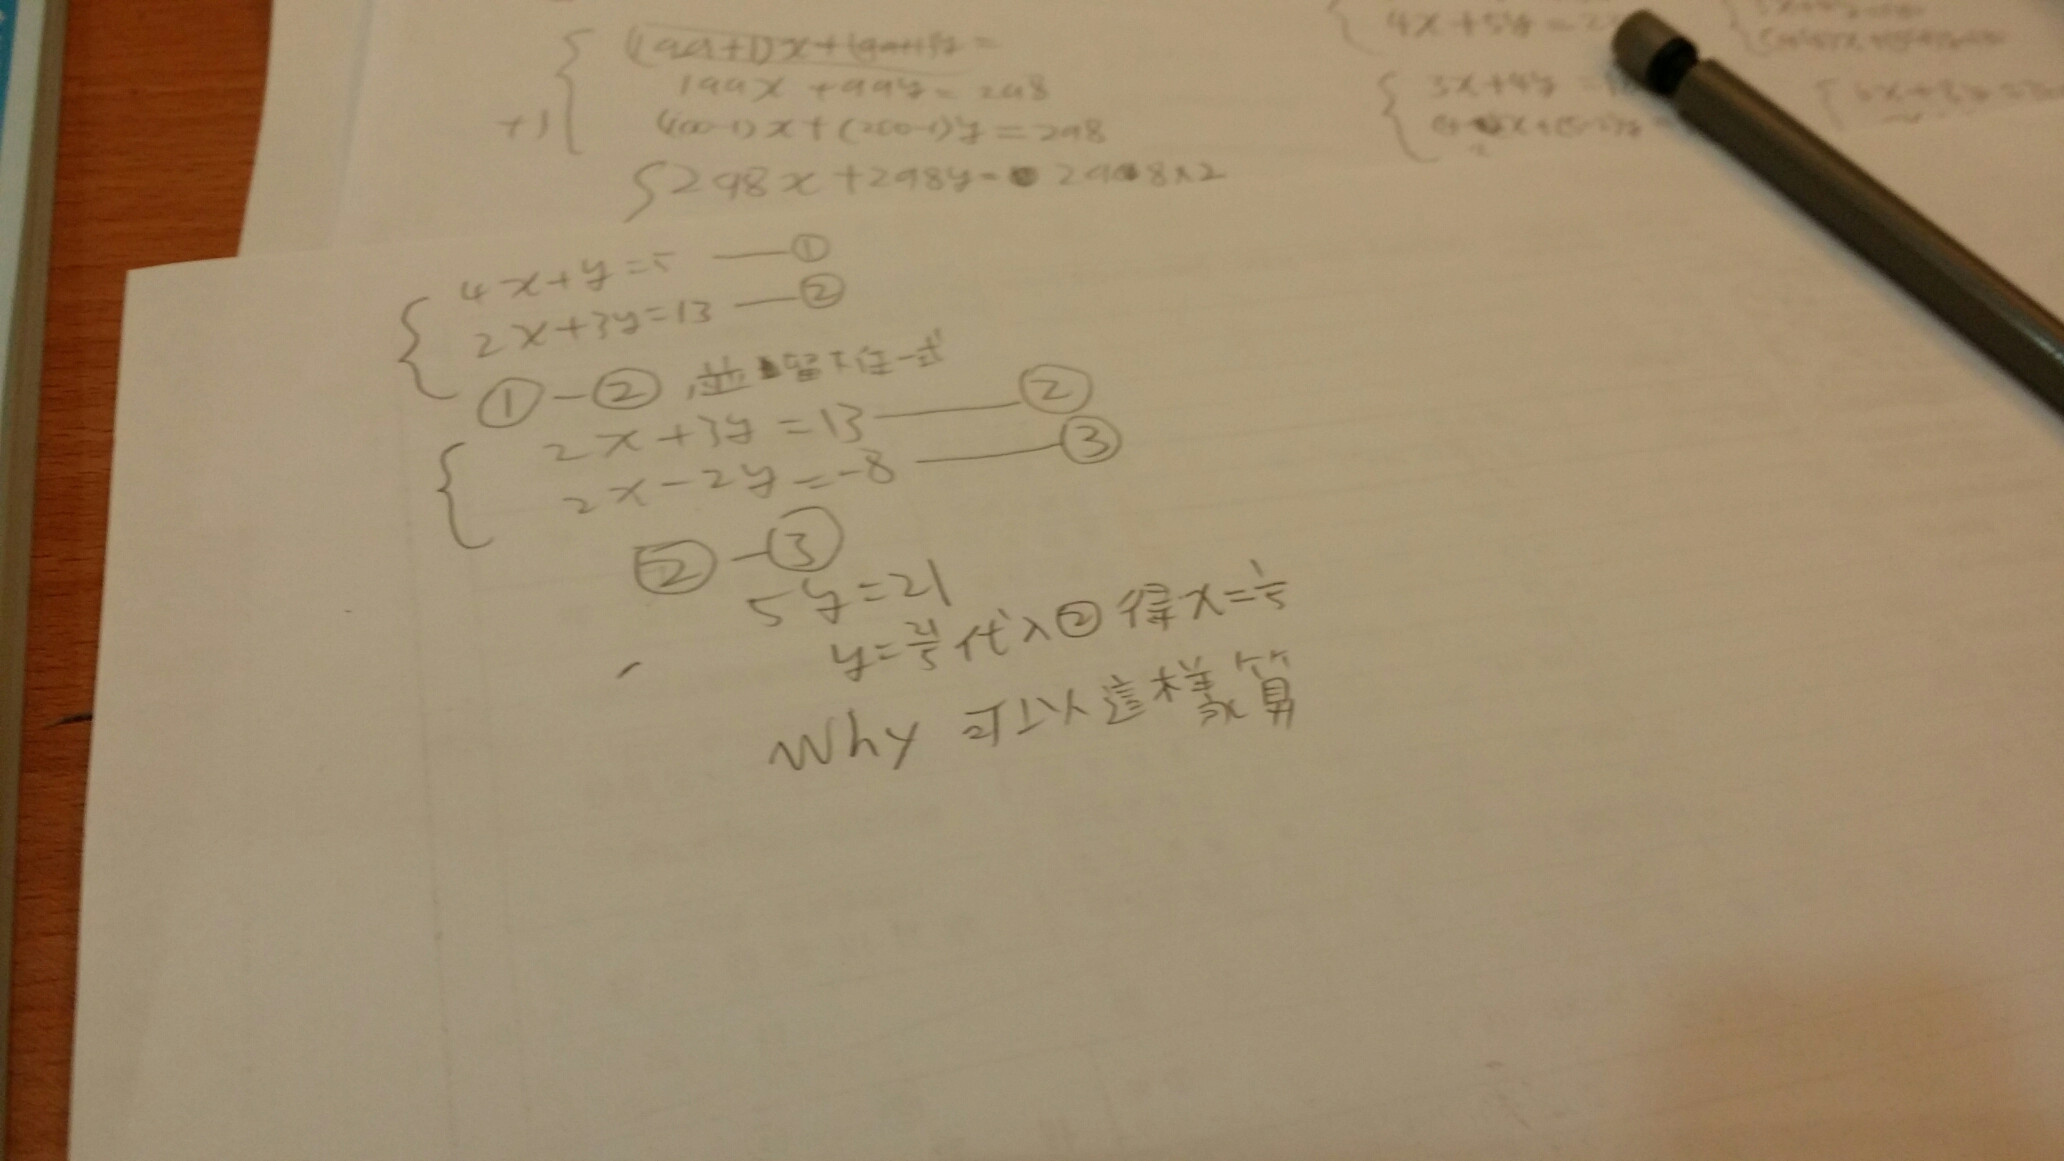 199x+99y=298
+)
(100-1)x+(200-1)y=298
298x+298y=298×2
4x+5y=
3x+4y
4x+y=5 —①
2x+3y=13 —②
①-②,並留下任一式
2x+3y=13 —②
2x-2y=-8 —③
②-③
5y=21
y=21/5代入②得x=1/5
Why 可以這樣算